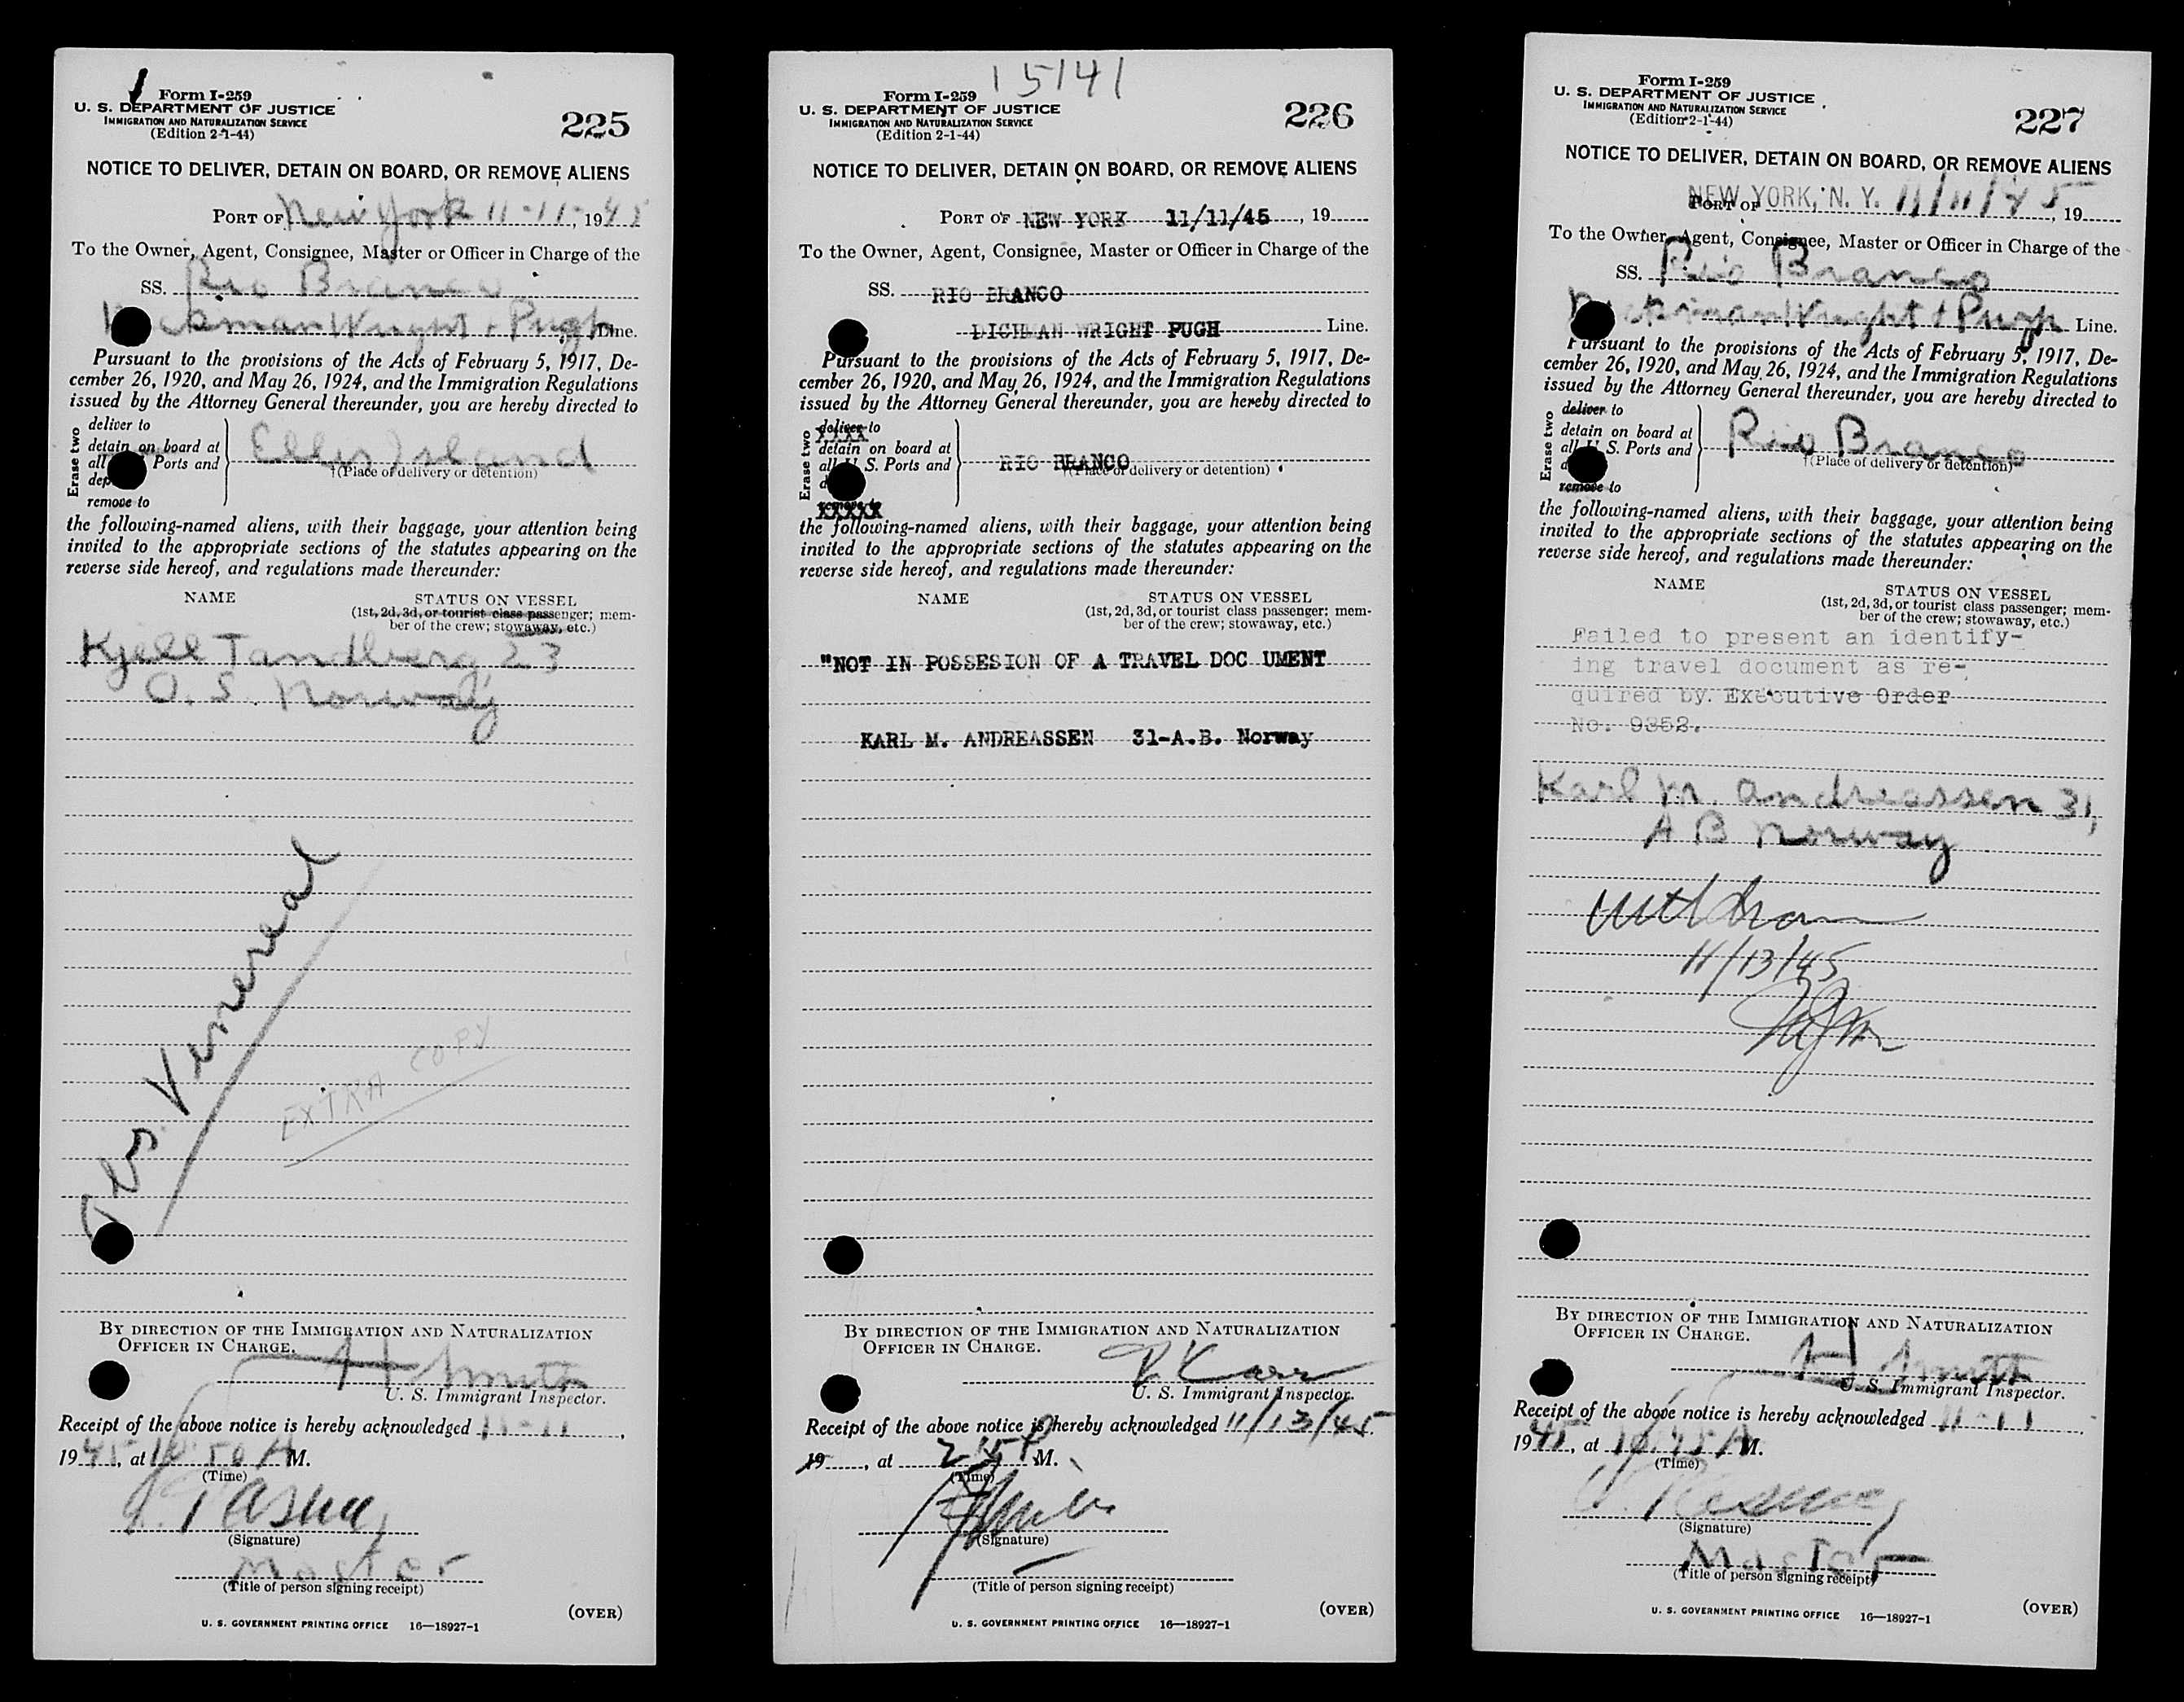 Form I-259
U. S. DEPARTMENT OF JUSTICE
IMMIGRATION AND NATURALIZATION SERVICE
(Edition 2-1-44)
225
NOTICE TO DELIVER, DETAIN ON BOARD, OR REMOVE ALIENS
PORT OF New York 11-11-, 1945
To the Owner, Agent, Consignee, Master or Officer in Charge of the
SS. Rio Branco
ckman Wright + Pugh Line.
Pursuant to the provisions of the Acts of February 5, 1917, De-
cember 26, 1920, and May 26, 1924, and the Immigration Regulations
issued by the Attorney General thereunder, you are hereby directed to
Erase two
deliver to
detain on board at
all Ports and
dep
remove to
Ellis Island
†(Place of delivery or detention)
the following-named aliens, with their baggage, your attention being
invited to the appropriate sections of the statutes appearing on the
reverse side hereof, and regulations made thereunder:
NAME STATUS ON VESSEL
(1st, 2d, 3d, or tourist class passenger; mem-
ber of the crew; stowaway, etc.)
Kjell Tandberg, 23
O. S. Norway
Venereal
EXTRA COPY
BY DIRECTION OF THE IMMIGRATION AND NATURALIZATION
OFFICER IN CHARGE.
H Smith
U. S. Immigrant Inspector.
Receipt of the above notice is hereby acknowledged 11-11,
1945, at 10 50 A M.
(Time)
(Signature)
Master
(Title of person signing receipt)
(OVER)
U. S. GOVERNMENT PRINTING OFFICE 16—18927-1
15141
Form I-259
U. S. DEPARTMENT OF JUSTICE
IMMIGRATION AND NATURALIZATION SERVICE
(Edition 2-1-44)
226
NOTICE TO DELIVER, DETAIN ON BOARD, OR REMOVE ALIENS
PORT OF NEW YORK 11/11/45, 19
To the Owner, Agent, Consignee, Master or Officer in Charge of the
SS. RIO BRANCO
DICHMAN WRIGHT PUGH Line.
Pursuant to the provisions of the Acts of February 5, 1917, De-
cember 26, 1920, and May 26, 1924, and the Immigration Regulations
issued by the Attorney General thereunder, you are hereby directed to
Erase two
deliver to
detain on board at
all U. S. Ports and
d
remove to
RIO BRANCO
†(Place of delivery or detention)
the following-named aliens, with their baggage, your attention being
invited to the appropriate sections of the statutes appearing on the
reverse side hereof, and regulations made thereunder:
NAME STATUS ON VESSEL
(1st, 2d, 3d, or tourist class passenger; mem-
ber of the crew; stowaway, etc.)
"NOT IN POSSESION OF A TRAVEL DOC UMENT
KARL M. ANDREASSEN 31-A.B. Norway
BY DIRECTION OF THE IMMIGRATION AND NATURALIZATION
OFFICER IN CHARGE.
U. S. Immigrant Inspector.
Receipt of the above notice is hereby acknowledged 11/13/45.
19, at 2 15 P M.
(Time)
(Signature)
(Title of person signing receipt)
(OVER)
U. S. GOVERNMENT PRINTING OFFICE 16—18927-1
Form I-259
U. S. DEPARTMENT OF JUSTICE
IMMIGRATION AND NATURALIZATION SERVICE
(Edition 2-1-44)
227
NOTICE TO DELIVER, DETAIN ON BOARD, OR REMOVE ALIENS
NEW YORK, N. Y. 11/11/45
PORT OF , 19
To the Owner, Agent, Consignee, Master or Officer in Charge of the
SS. Rio Branco
ckman Wright + Pugh Line.
Pursuant to the provisions of the Acts of February 5, 1917, De-
cember 26, 1920, and May 26, 1924, and the Immigration Regulations
issued by the Attorney General thereunder, you are hereby directed to
Erase two
deliver to
detain on board at
all U. S. Ports and
d
remove to
Rio Branco
†(Place of delivery or detention)
the following-named aliens, with their baggage, your attention being
invited to the appropriate sections of the statutes appearing on the
reverse side hereof, and regulations made thereunder:
NAME STATUS ON VESSEL
(1st, 2d, 3d, or tourist class passenger; mem-
ber of the crew; stowaway, etc.)
Failed to present an identify-
ing travel document as re-
quired by Executive Order
No. 9352.
Karl M. Andreassen 31,
A B Norway
Withdrawn
11/13/45
BY DIRECTION OF THE IMMIGRATION AND NATURALIZATION
OFFICER IN CHARGE.
H Smith
U. S. Immigrant Inspector.
Receipt of the above notice is hereby acknowledged 11-11
1945, at 10 45 A M.
(Time)
(Signature)
Master
(Title of person signing receipt)
(OVER)
U. S. GOVERNMENT PRINTING OFFICE 16—18927-1